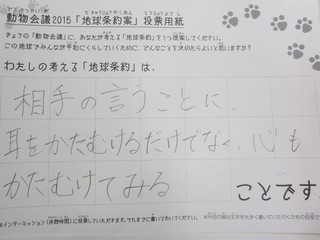 動物会議2015「地球条約案」投票用紙
きょうの「動物会議」に、あなたが考える「地球条約」を1つ提案してください。
この地球でみんなが平和にくらしていくために、どんなことを決めたらよいと思いますか？
わたしの考える「地球条約」は、
相手の言うことに、
耳をかたむけるだけでなく、心も
かたむけてみる
ことです